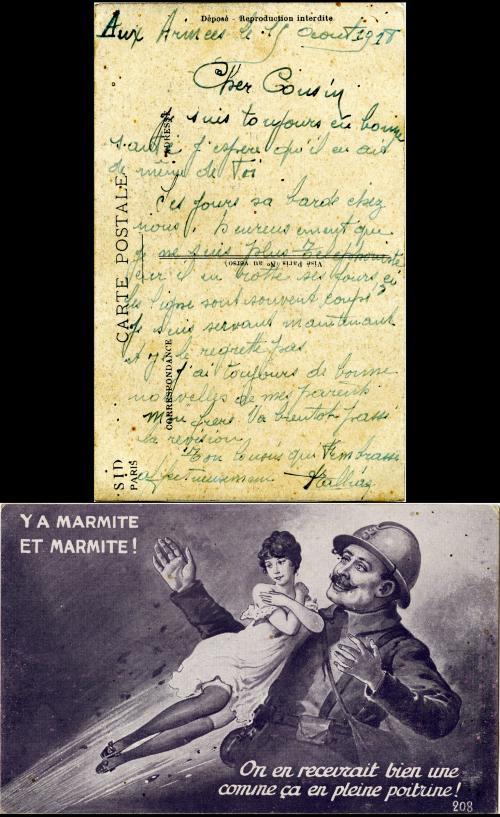 Déposé - Reproduction interdite
Aux Armées le 15 Aout 1918
Cher Cousin
suis toujours en bonne
santé j'espère qu'il en ait
de même de Toi
Ces jours sa barde chez
nous. heureusement que
je ne suis plus Telephoniste
car il en trotte ses jours ci
les ligne sont souvent coupé
Je suis servant maintenant
et je le regrette pas
j'ai toujours de bonne
nouvelles de mes parents
Mon frere Va bientot passé
la revision
Ton cousin qui T'embrasse
affectueusement
CARTE POSTALE
ADRESSE
CORRESPONDANCE
Visé Paris (No au verso)
SID
PARIS
Y A MARMITE
ET MARMITE !
On en recevrait bien une
comme ça en pleine poitrine !
208